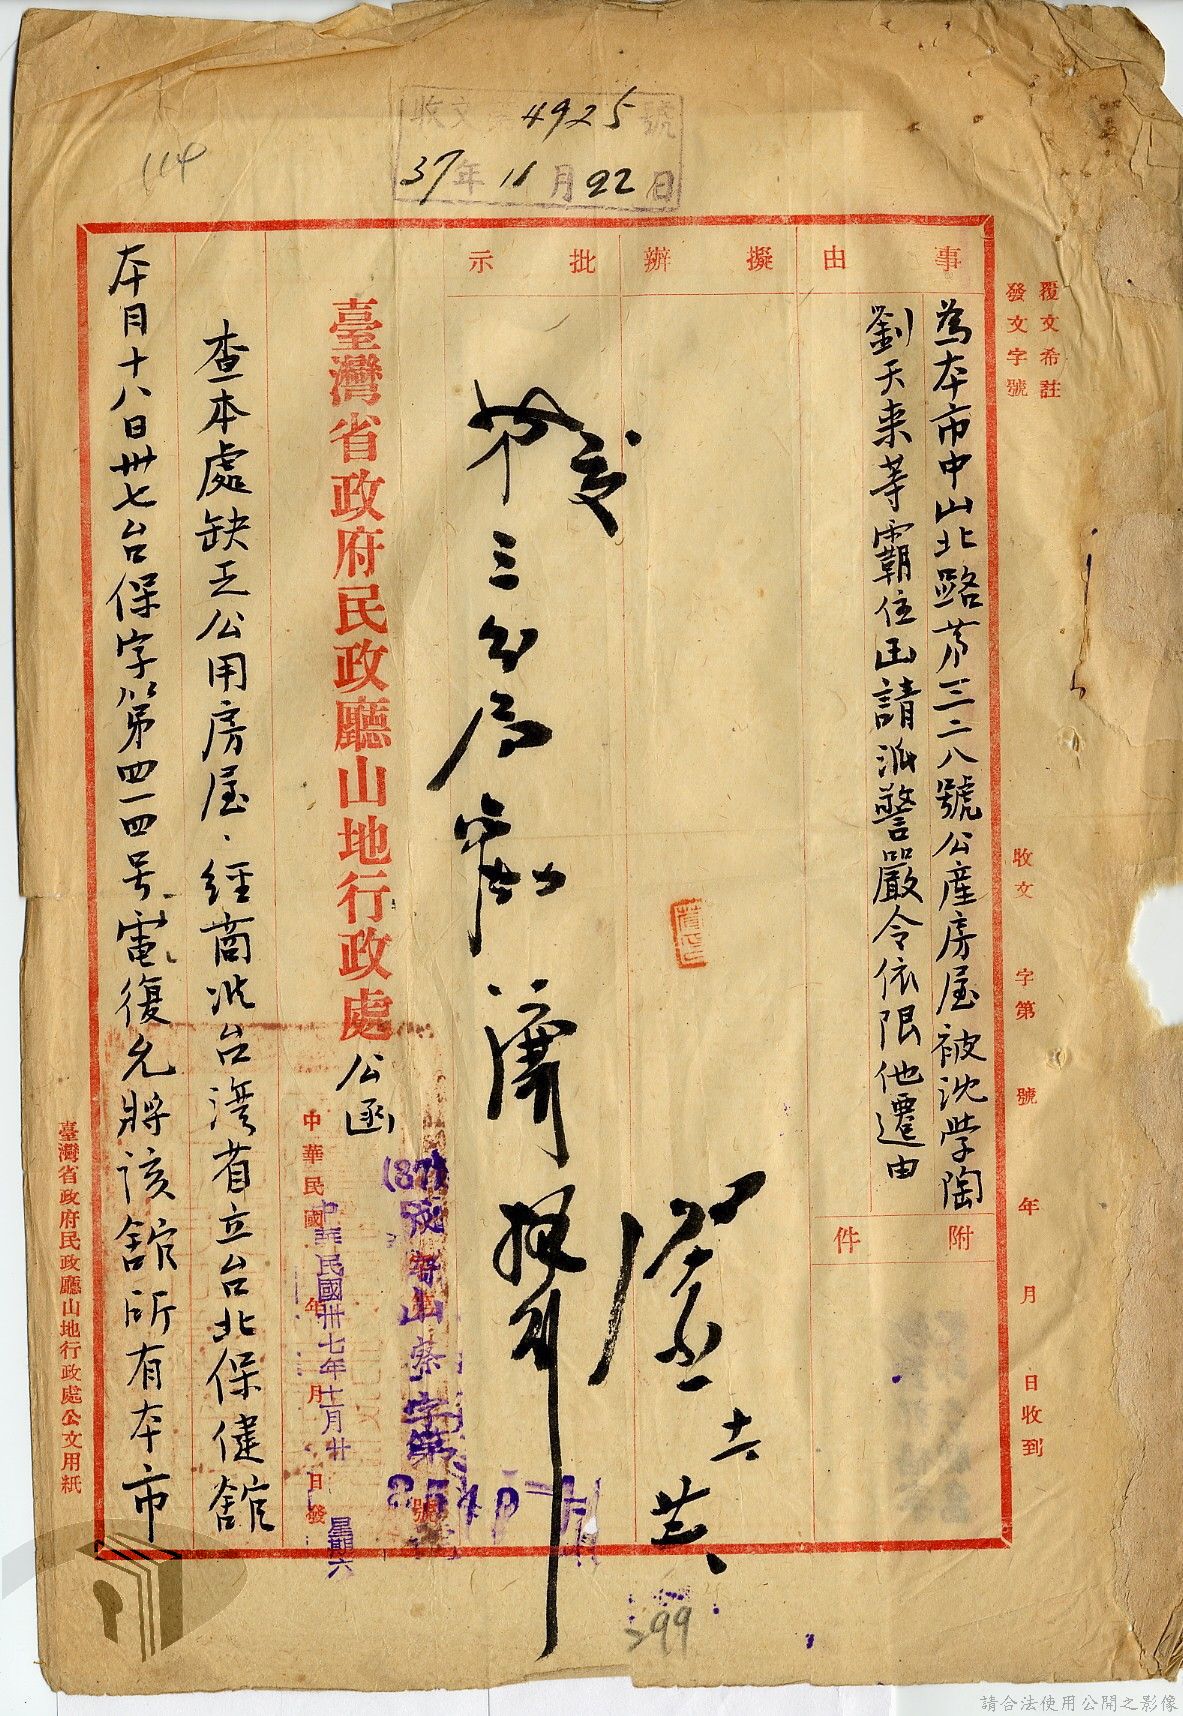 收文 4925 號
37年11月22日
114
覆文希註
發文字號
收文 字第 號 年 月 日收到
事由
擬辦
批示
為本市中山北路第三二八號公產房屋被沈學陶
劉天來等霸住函請派警嚴令依限他遷由
附件
十一 廿六
交
第三分局
臺灣省政府民政廳山地行政處
公函
中華民國 年 月 日發
中華民國卅七年十一月廿
星期六
(37) 山蔡字第 號
查本處缺乏公用房屋、經商准台灣省立台北保健館
本月十八日卅七台保字第四一四号電復允將該館所有本市
臺灣省政府民政廳山地行政處公文用紙
299
請合法使用公開之影像